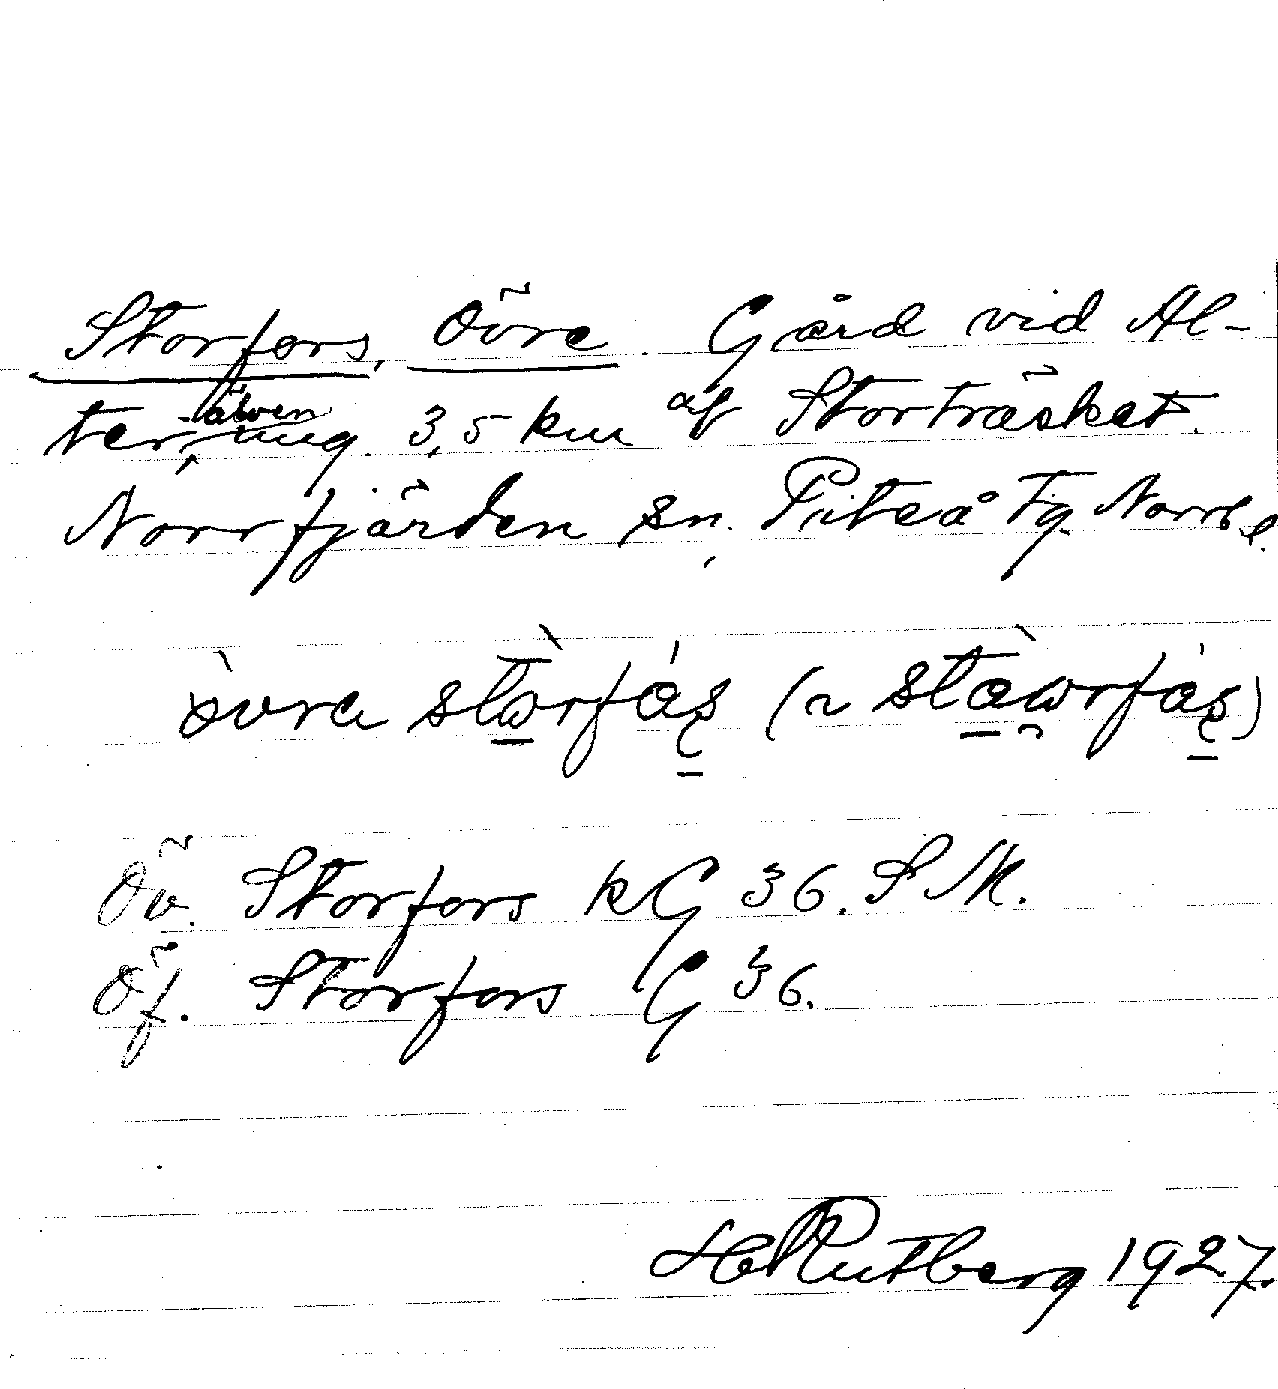 Storfors, Övre. Gård vid Al-
ter-älven ung. 3,5 km af Storträsket.
Norrfjärden sn. Piteå Tg. Norrb l.
övra stὼrfás̨ (~ stàωrfás̨)
Öv. Storfors kG 36. S M.
Öf. Storfors G 36.
H Rutberg 1927.